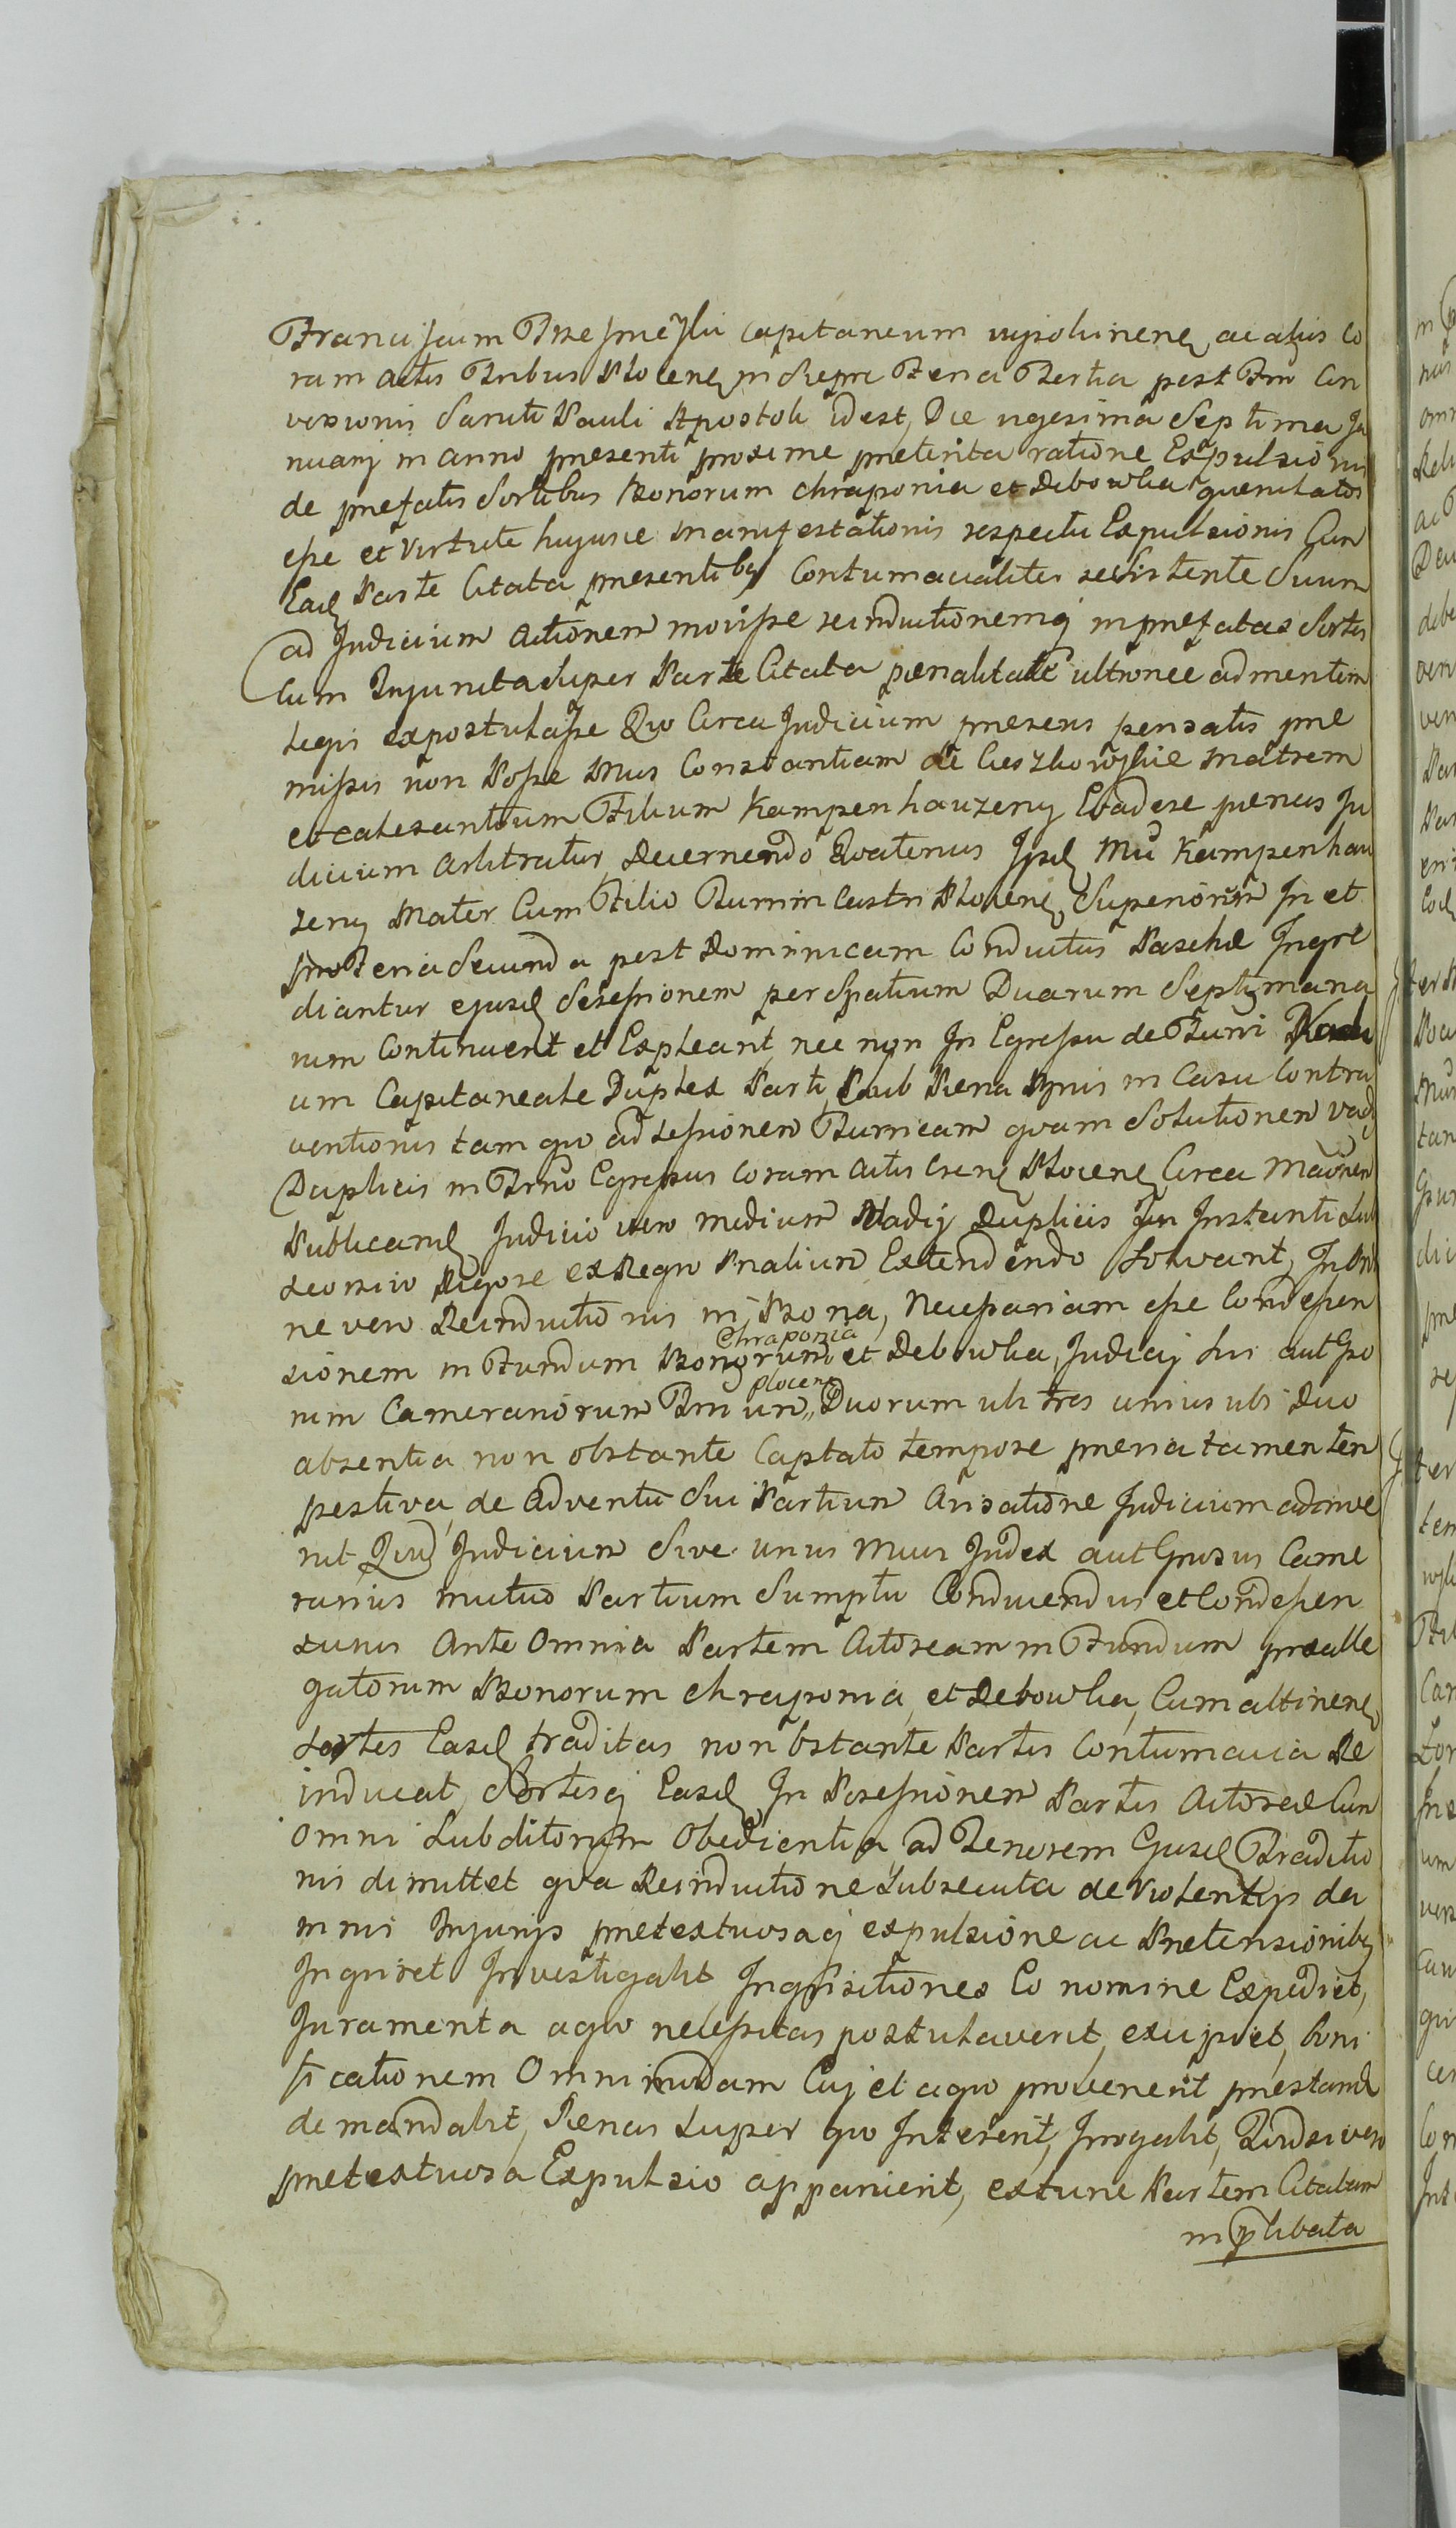 Franciscum Przesmeyski Capitaneum co
ram actis Tribus Plocen in Siepre Feria Tertia post Con
versionis Sancti Pauli Apostoli idest, Die vigesima Septima Ja
nuarij in anno presenti proxime preterita ratione Expulsionis
de prefatis Sortibus Bonorum Chraponia et Debowka querulatos
esse et virtute hujusce manifestationis respectu Expulsionis Cum
Ead Parte Citata presentibus Contumacialiter se Sistente Suum
ad Judicium Actionem movisse reinductionemq in prefatas Sortes
Cum Injuncta Super Parte Citata penalitate ultronee ad mentem
Legis expostulasse Quo Circa Judicium presens pensatis pre
missis non Posse Mus Constantiam de Cieszkowskie Matrem
et Filium Kampenhauzeny Evadere penas Ju
dicium Arbitratur, Decernendo Quatenus Ipsa Ma Kampenhau
zeny Mater Cum Filio Turrim Castri Plocen Superiorem In et
pro Feria Secunda post Dominicam Conductus Pasche Ingre
diantur ejusd Sesessionem per Spatium Duarum Septimana
rum Continuent et Expleant, nec non In Egressu de Turri
um Capitaneale Duplex Parti, Sub Pena Bnis in Casu Contra
ventionis tam quo ad sessionem Turrieam quam Solutionem vadj
Duplicis in Trno Egressus coram Actis Csren Plocen Circa Maonen
Publicand Judicio vero medium Vadij Duplicis In Instanti Sub
seorsivo Rigore ex Regro Pnalium Extendendo Solvant, In Ordi
ne vero Reinductionis in Bona, Necessariam esse Condescen
sionem in Fundum Bonorum Chraponia et Debowka, Judicij Sui aut Gro
rum Camerariorum Trrum plocen Duorum ubi tres unius ubi Duo
absentia non obstante Captato tempore previa tamen tem
pestiva, de Adventu Sui Partium Avisatione Judicium adinve
nit Quod Judicium Sive unus Muus Judex aut Grosus Came
rarius mutuo Partium Sumptu Conducendus et Condescen
surus Ante Omnia Partem Actoream in Fundum preealle
gatorum Bonorum Chraponia, et Debowka, Cum attinen
Sortes Easd traditas non bstante Partis Contumacia Re
inducat, Sortesq Easd In Posessionem Partis Actoree Cum
Omni Subditorum Obedientia ad Tenorem Ejusd Traditio
nis dimittet qua Reinductione Subsecuta de Violentijs da
mnis Injurijs pretextuosaq expulsione ac Pretensionibus
Inquiret Investigabit, Inquisitiones Eo nomine Expediet,
Juramenta aquo necessitas postulaverit, excipiet, boni
ficationem Omnimodam Cuj et aquo provenerit prestand
demandabit, Penas Super quo Intererit, Irrogabit, Quodsi vero
pretextuosa Expulsio apparuerit, extunc Partem Citatam
in plibata